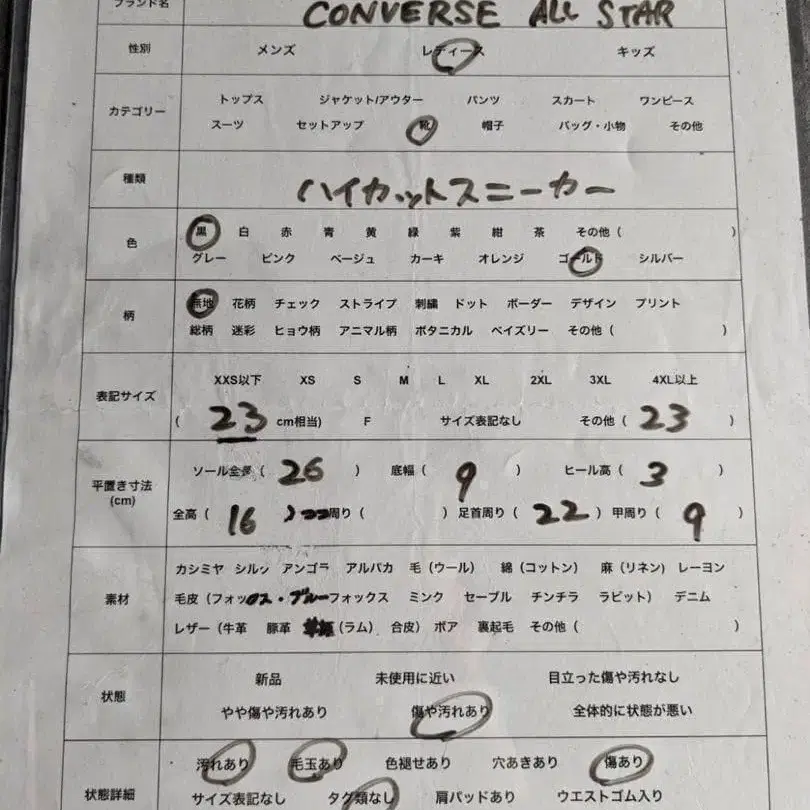 ブランド名 CONVERSE ALL STAR
性別 メンズ レディース キッズ
カテゴリー トップス ジャケット/アウター パンツ スカート ワンピース
スーツ セットアップ 靴 帽子 バッグ・小物 その他
種類 ハイカットスニーカー
色 黒 白 赤 青 黄 緑 紫 紺 茶 その他 ( )
グレー ピンク ベージュ カーキ オレンジ ゴールド シルバー
柄 無地 花柄 チェック ストライプ 刺繍 ドット ボーダー デザイン プリント
総柄 迷彩 ヒョウ柄 アニマル柄 ボタニカル ペイズリー その他 ( )
表記サイズ XXS以下 XS S M L XL 2XL 3XL 4XL以上
( 23 cm相当) F サイズ表記なし その他 ( 23 )
平置き寸法 (cm) ソール全長 ( 26 ) 底幅 ( 9 ) ヒール高 ( 3 )
全高 ( 16 ) 周り ( ) 足首周り ( 22 ) 甲周り ( 9 )
素材 カシミヤ シルク アンゴラ アルパカ 毛 (ウール) 綿 (コットン) 麻 (リネン) レーヨン
毛皮 (フォックス・ブルーフォックス ミンク セーブル チンチラ ラビット) デニム
レザー (牛革 豚革 (ラム) 合皮) ボア 裏起毛 その他 ( )
状態 新品 未使用に近い 目立った傷や汚れなし
やや傷や汚れあり 傷や汚れあり 全体的に状態が悪い
状態詳細 汚れあり 毛玉あり 色褪せあり 穴あきあり 傷あり
サイズ表記なし タグ類なし 肩パッドあり ウエストゴム入り